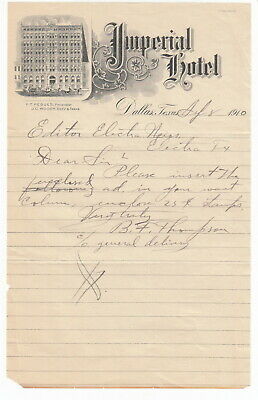 Imperial
Hotel
F. T. PEGUES, PRESIDENT.
J. C. WOODY, SECY & TREAS.
Dallas, Texas 8 1910
Editor Electra News,
Electra Tx
Dear Sir
Please insert the
(enclosed) ad, in your want
Column, enclose 25¢ Stamps,
Very truly
B. F. Thompson
c/o general delivery